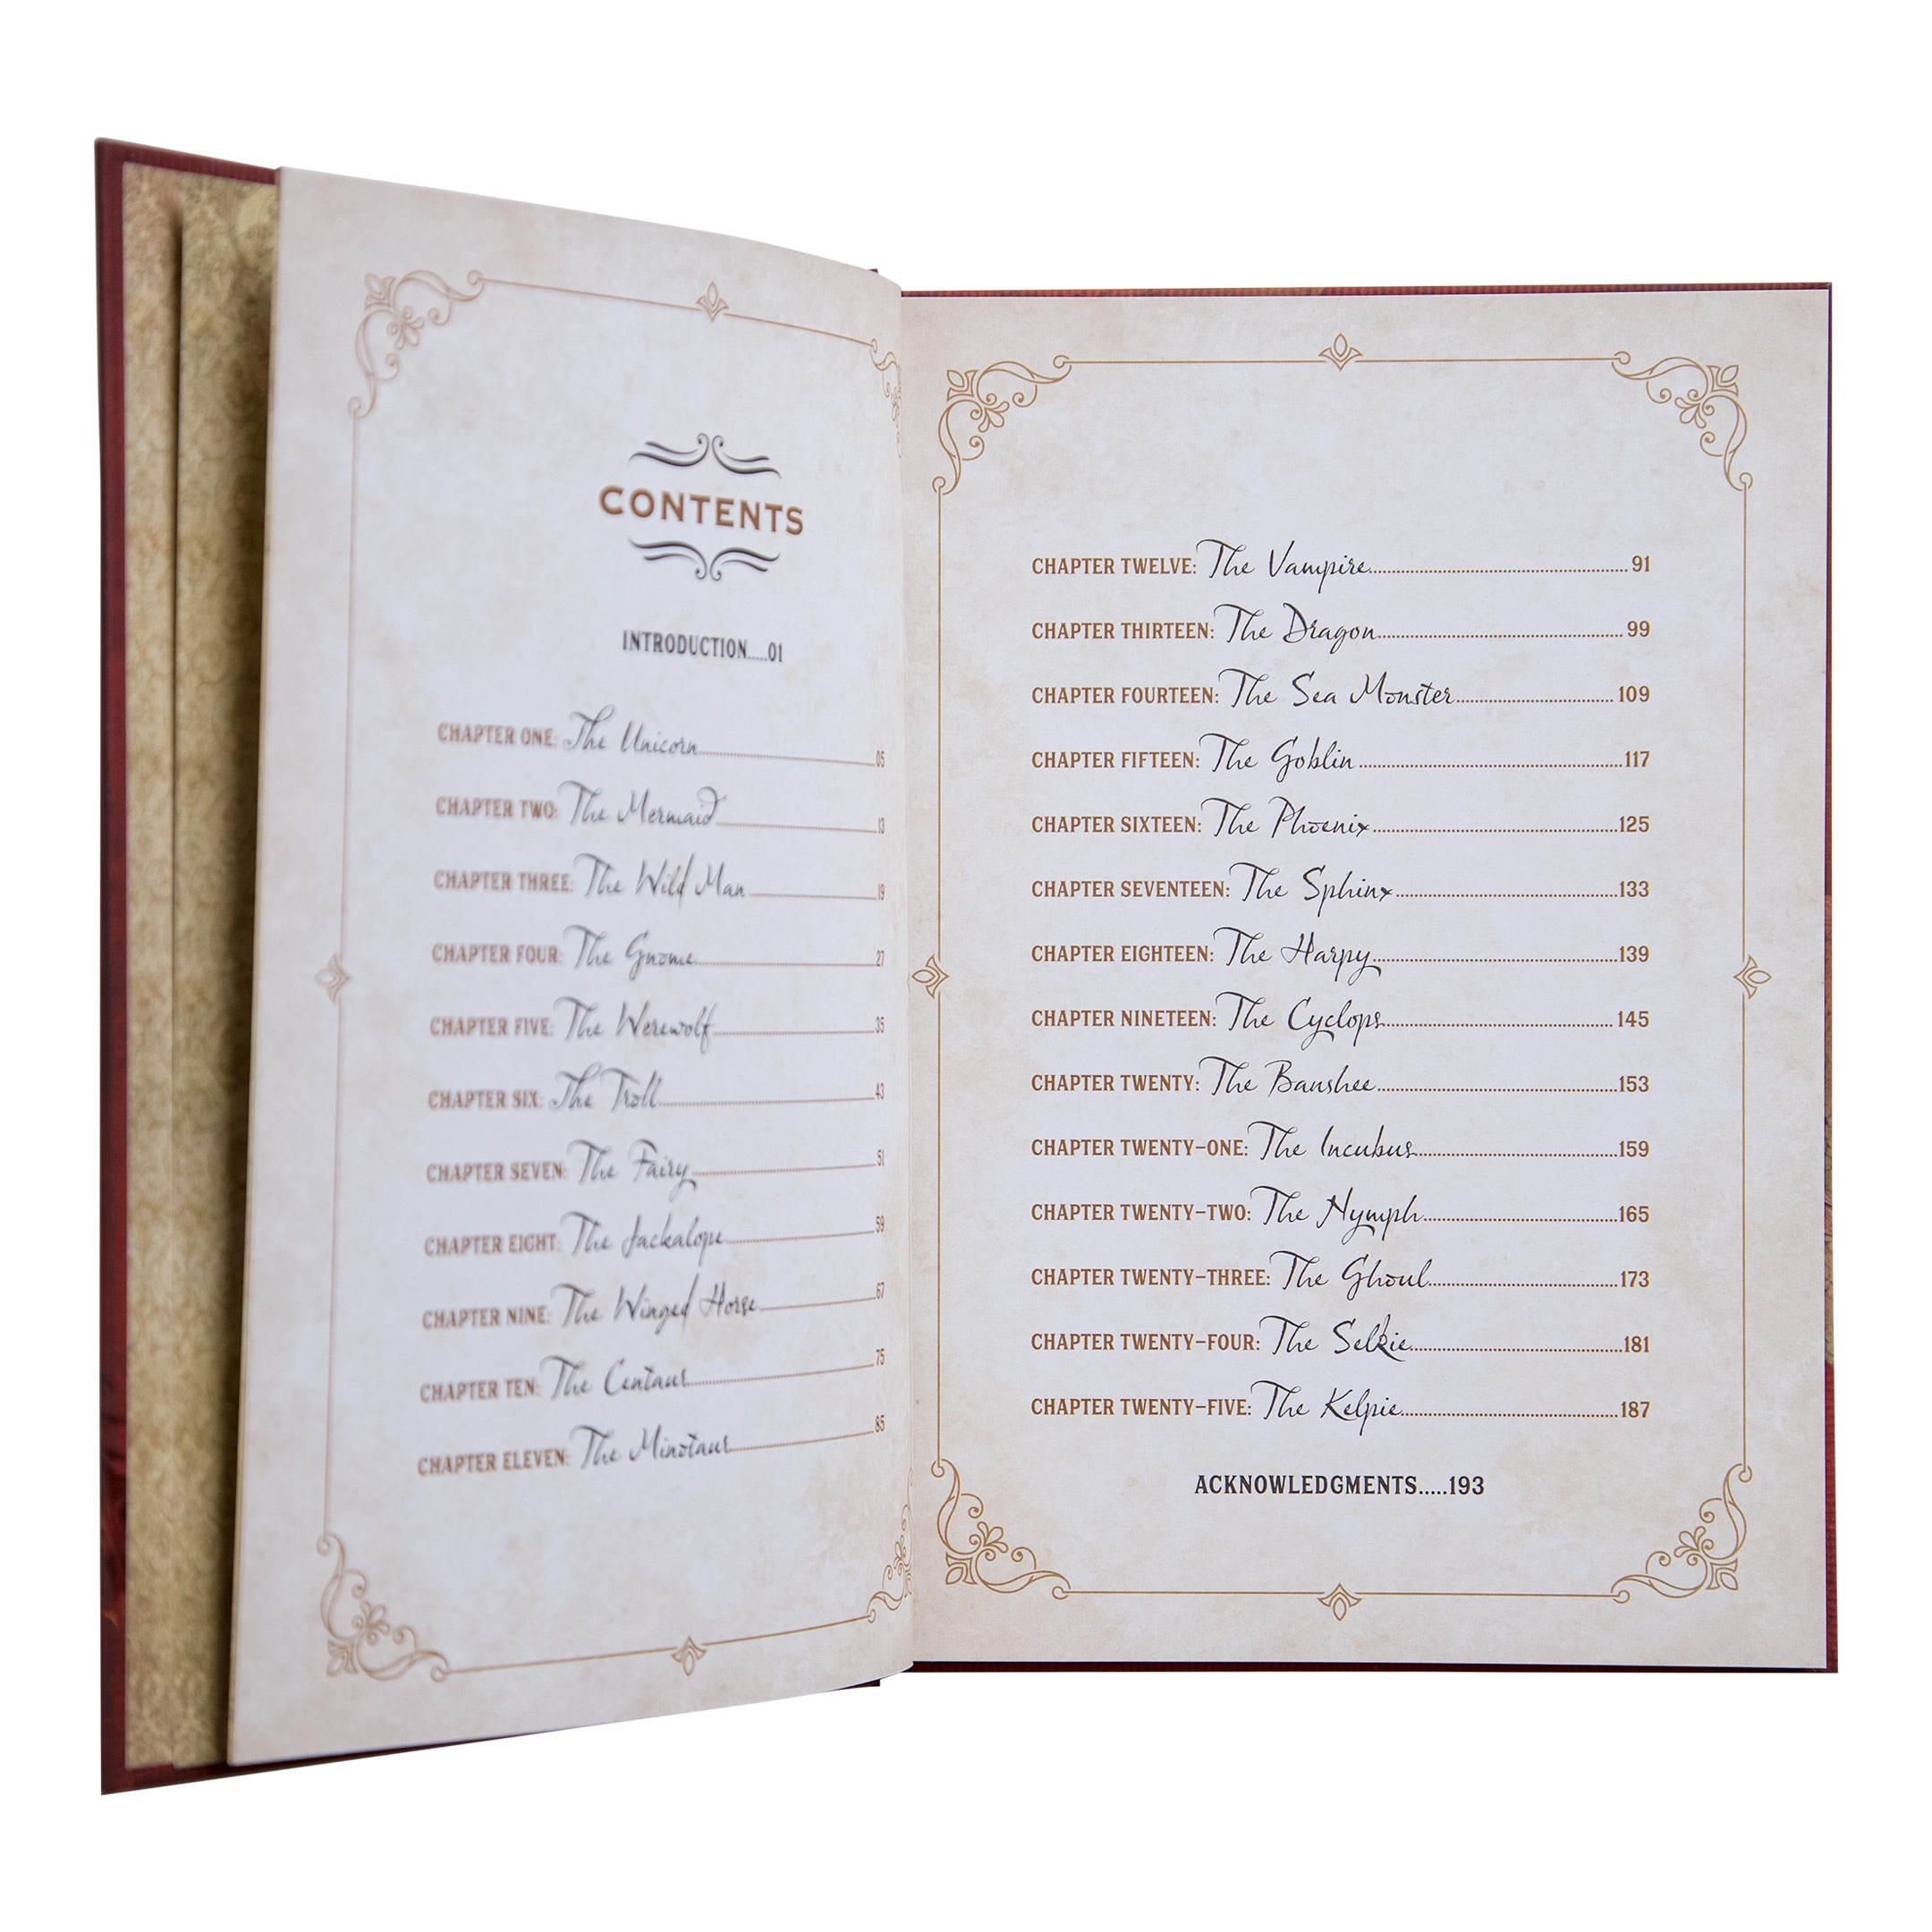 CONTENTS
INTRODUCTION.....01
CHAPTER ONE: The Unicorn 05
CHAPTER TWO: The Mermaid 13
CHAPTER THREE: The Wild Man 19
CHAPTER FOUR: The Gnome 27
CHAPTER FIVE: The Werewolf 35
CHAPTER SIX: The Troll 43
CHAPTER SEVEN: The Fairy 51
CHAPTER EIGHT: The Jackalope 59
CHAPTER NINE: The Winged Horse 67
CHAPTER TEN: The Centaur 75
CHAPTER ELEVEN: The Minotaur 85
CHAPTER TWELVE: The Vampire 91
CHAPTER THIRTEEN: The Dragon 99
CHAPTER FOURTEEN: The Sea Monster 109
CHAPTER FIFTEEN: The Goblin 117
CHAPTER SIXTEEN: The Phoenix 125
CHAPTER SEVENTEEN: The Sphinx 133
CHAPTER EIGHTEEN: The Harpy 139
CHAPTER NINETEEN: The Cyclops 145
CHAPTER TWENTY: The Banshee 153
CHAPTER TWENTY-ONE: The Incubus 159
CHAPTER TWENTY-TWO: The Nymph 165
CHAPTER TWENTY-THREE: The Ghoul 173
CHAPTER TWENTY-FOUR: The Selkie 181
CHAPTER TWENTY-FIVE: The Kelpie 187
ACKNOWLEDGMENTS.....193